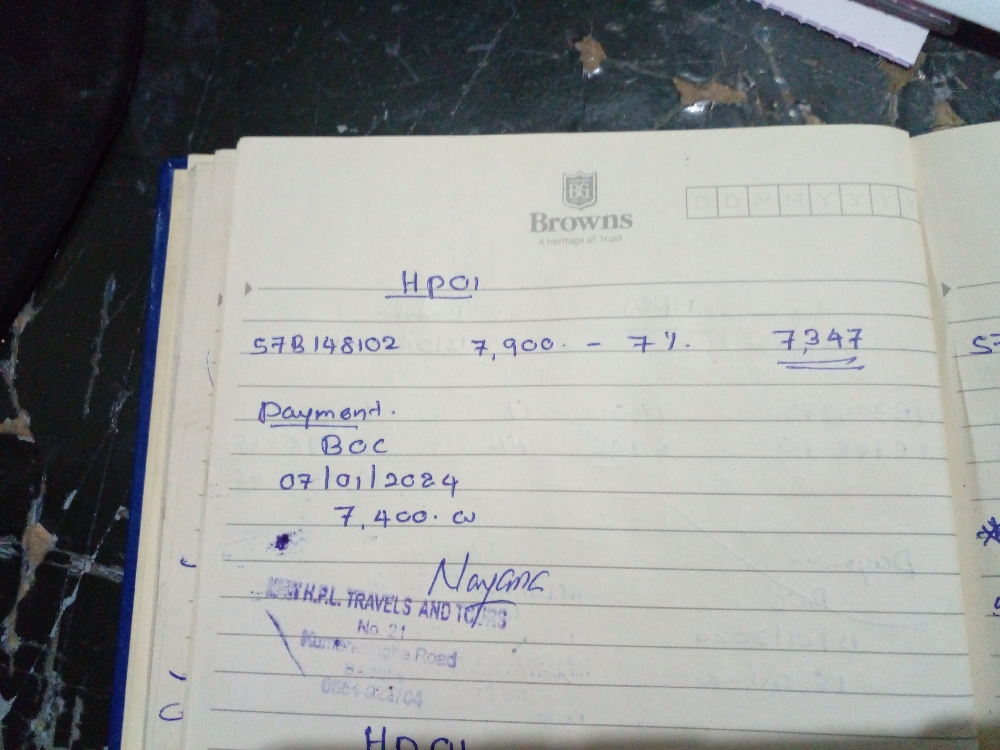 BG
Browns
A Heritage of Trust
D D M M Y Y Y Y
HPOI
S7B148102 7,900. - 7%. 7,347
S7
Payment.
BOC
07/01/2024
7,400. 00
Nayana
NEW H.P.L. TRAVELS AND TOURS
No. 21
Kumarasinghe Road